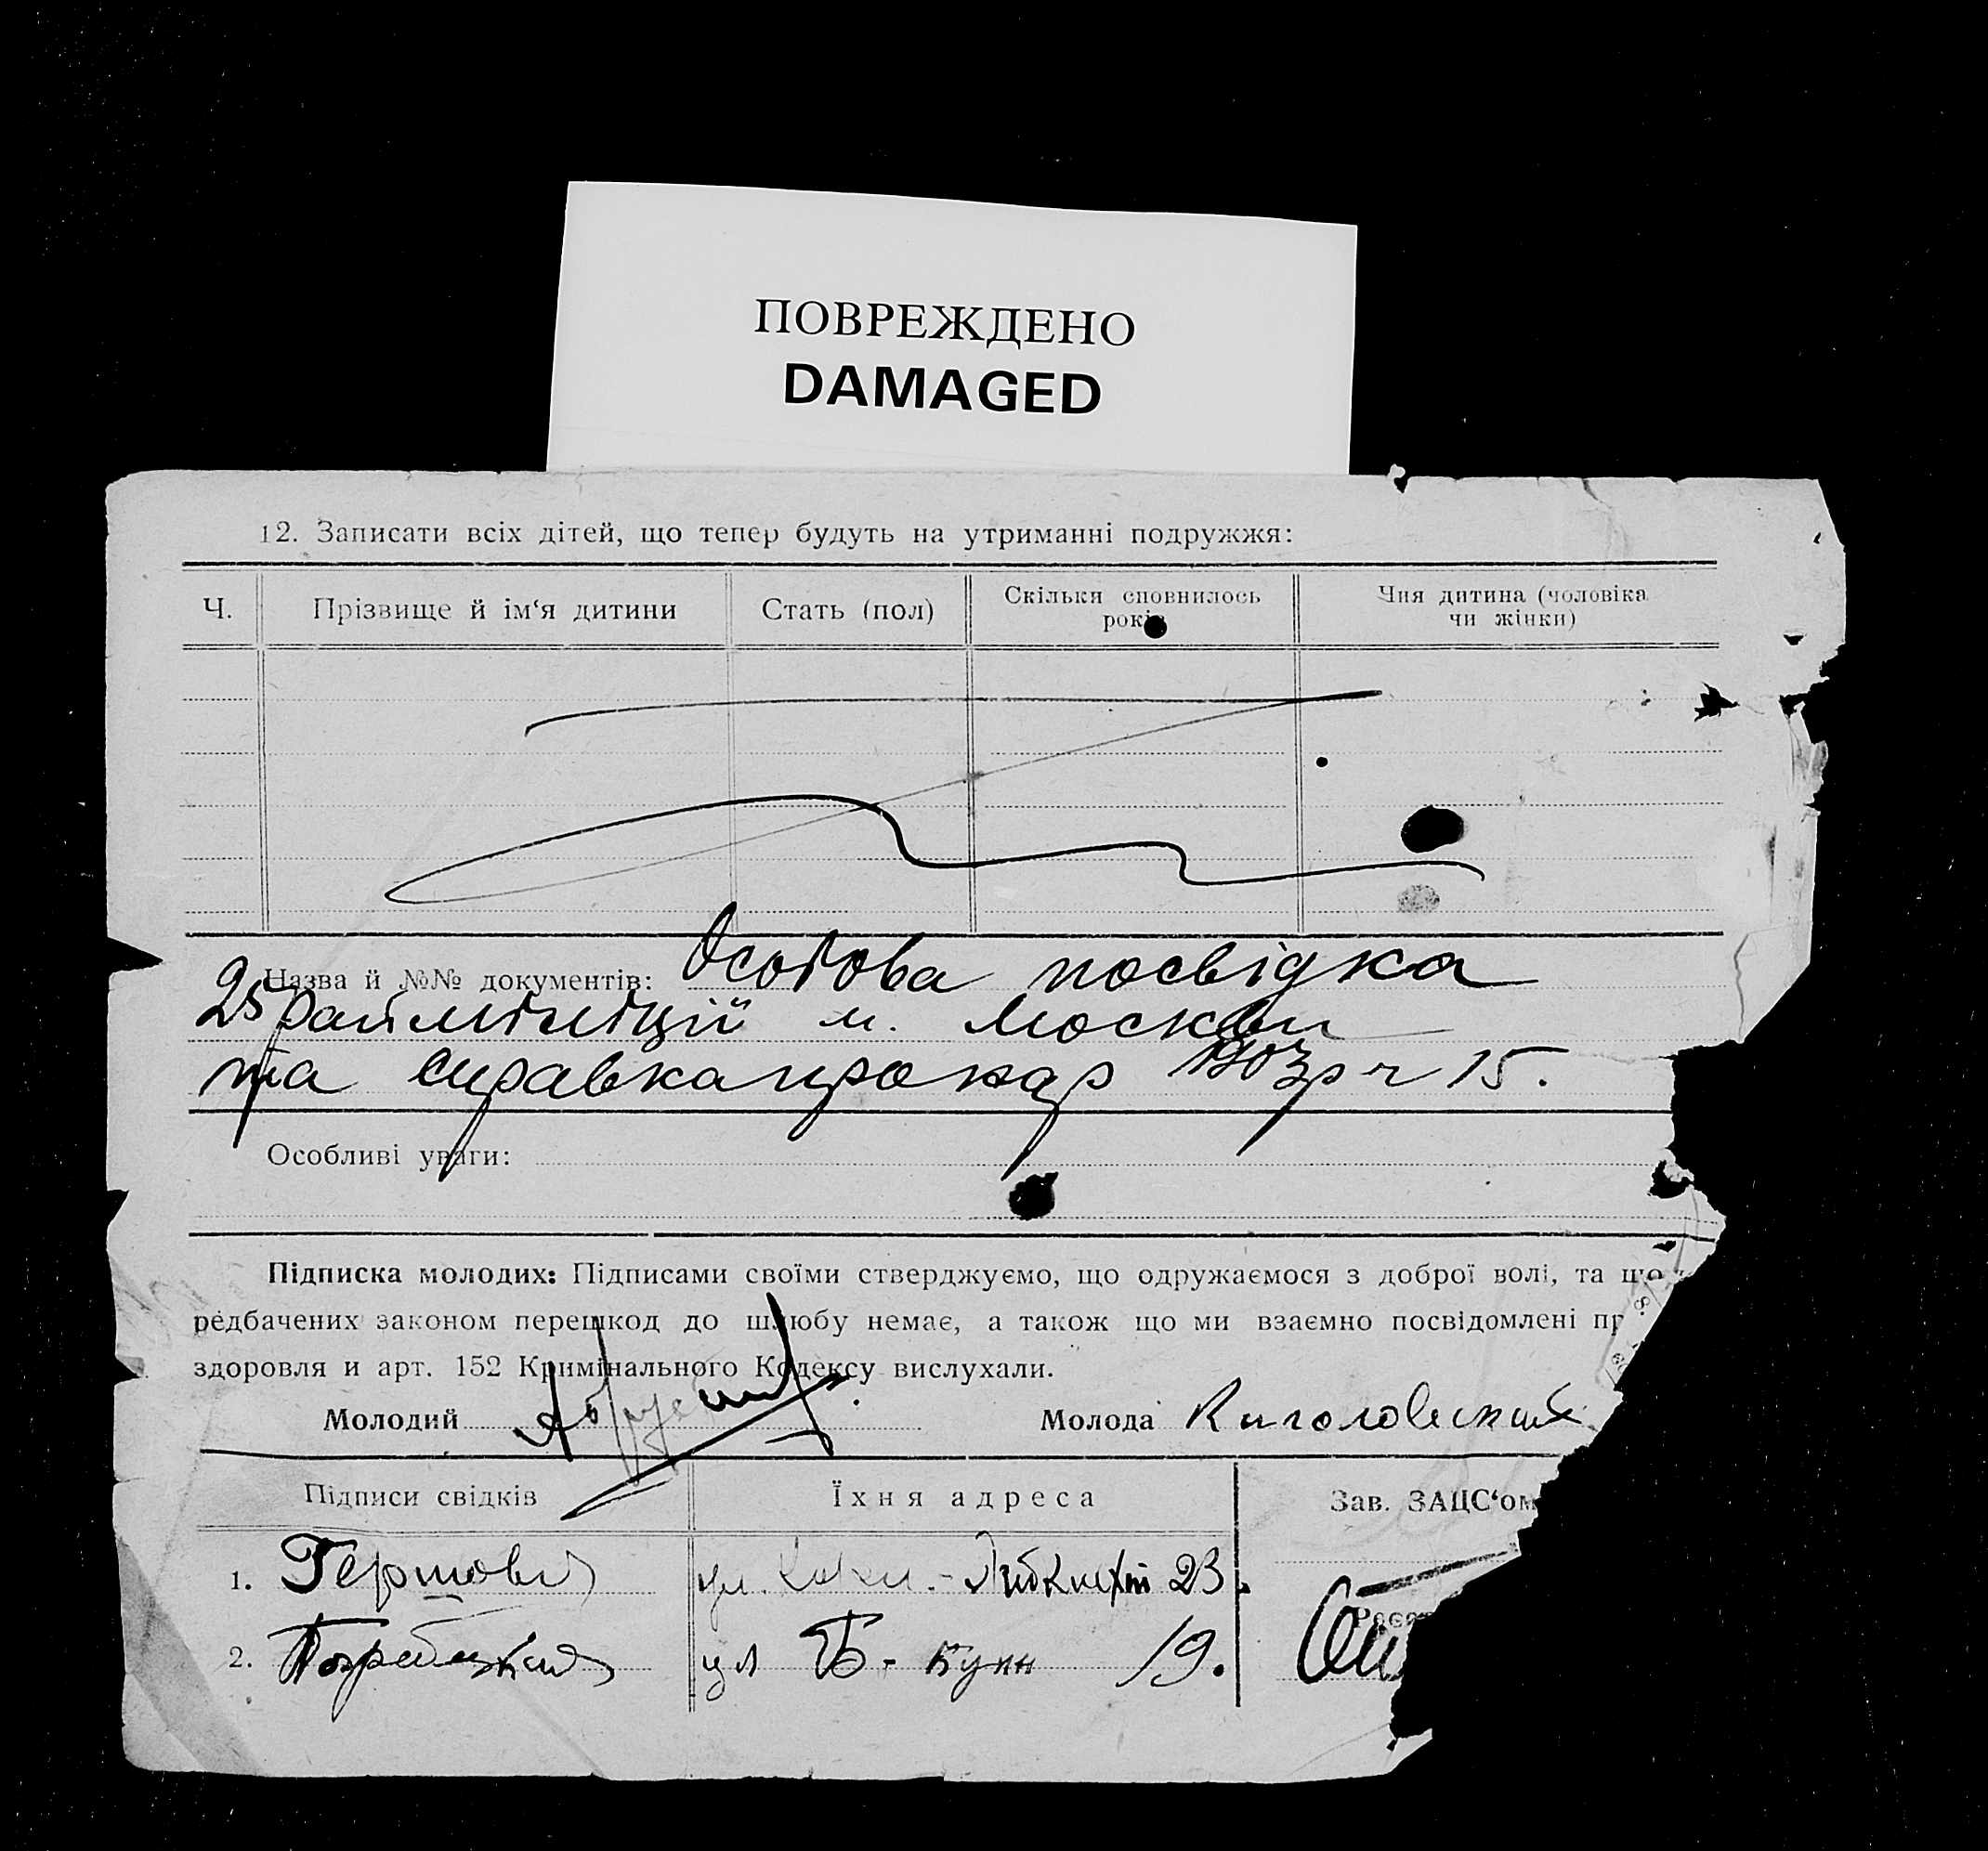 ПОВРЕЖДЕНО
DAMAGED
12. Записати всіх дітей, що тепер будуть на утриманні подружжя:
Ч.
Прізвище й ім‘я дитини
Стать (пол)
Скільки сповнилось
років
Чия дитина (чоловіка
чи жінки)
Назва й №№ документів: Особова посвідка
25 райміліції м. Москви
та справка про нар 1903 р ч 15.
Особливі уваги:
Підписка молодих: Підписами своїми стверджуємо, що одружаємося з доброї волі, та що
редбачених законом перешкод до шлюбу немає, а також що ми взаємно посвідомлені пр
здоровля и арт. 152 Кримінального Кодексу вислухали.
Молодий
Молода
Підписи свідків
Їхня адреса
Зав. ЗАЦС‘ом
1. Гершович
23.
2.
ул Б-Кунн 19.